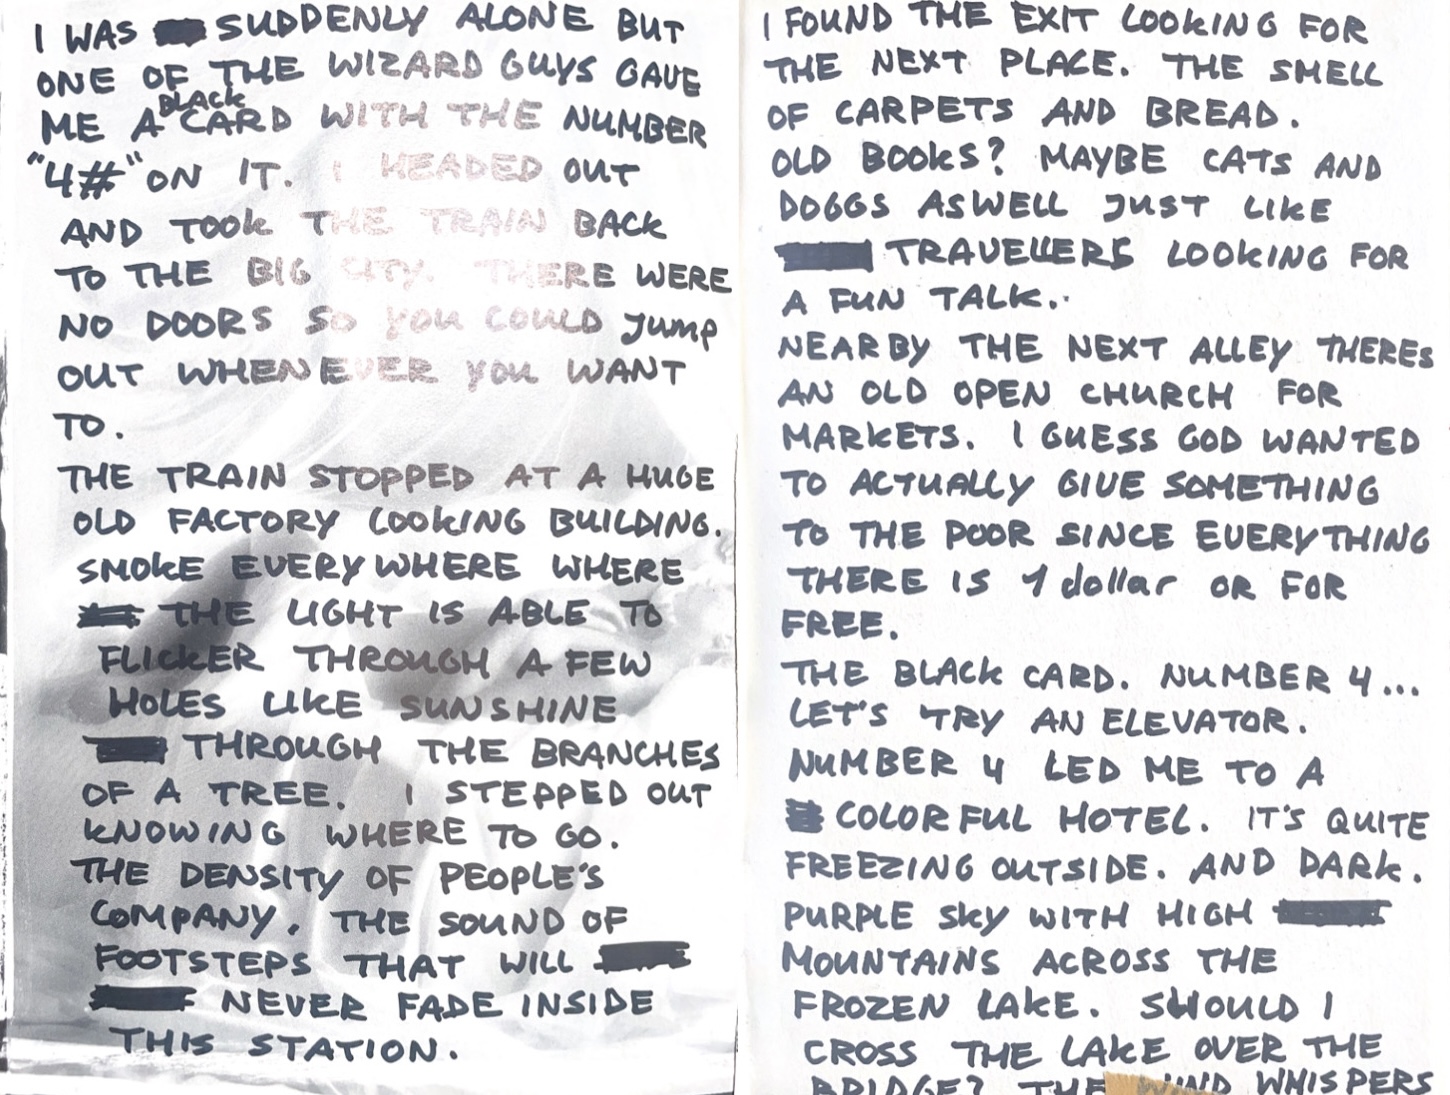 I WAS SUDDENLY ALONE BUT
ONE OF THE WIZARD GUYS GAVE
ME A BLACK CARD WITH THE NUMBER
"4#" ON IT. I HEADED OUT
AND TOOK THE TRAIN BACK
TO THE BIG CITY. THERE WERE
NO DOORS SO YOU COULD JUMP
OUT WHENEVER YOU WANT
TO.
THE TRAIN STOPPED AT A HUGE
OLD FACTORY LOOKING BUILDING.
SMOKE EVERYWHERE WHERE
THE LIGHT IS ABLE TO
FLICKER THROUGH A FEW
HOLES LIKE SUNSHINE
THROUGH THE BRANCHES
OF A TREE. I STEPPED OUT
KNOWING WHERE TO GO.
THE DENSITY OF PEOPLE'S
COMPANY. THE SOUND OF
FOOTSTEPS THAT WILL
NEVER FADE INSIDE
THIS STATION.
I FOUND THE EXIT LOOKING FOR
THE NEXT PLACE. THE SMELL
OF CARPETS AND BREAD.
OLD BOOKS? MAYBE CATS AND
DOGGS ASWELL JUST LIKE
TRAVELLERS LOOKING FOR
A FUN TALK..
NEARBY THE NEXT ALLEY THERES
AN OLD OPEN CHURCH FOR
MARKETS. I GUESS GOD WANTED
TO ACTUALLY GIVE SOMETHING
TO THE POOR SINCE EVERYTHING
THERE IS 1 dollar OR FOR
FREE.
THE BLACK CARD. NUMBER 4...
LET'S TRY AN ELEVATOR.
NUMBER 4 LED ME TO A
COLORFUL HOTEL. IT'S QUITE
FREEZING OUTSIDE. AND DARK.
PURPLE SKY WITH HIGH
MOUNTAINS ACROSS THE
FROZEN LAKE. SHOULD I
CROSS THE LAKE OVER THE
BRIDGE? THE WIND WHISPERS